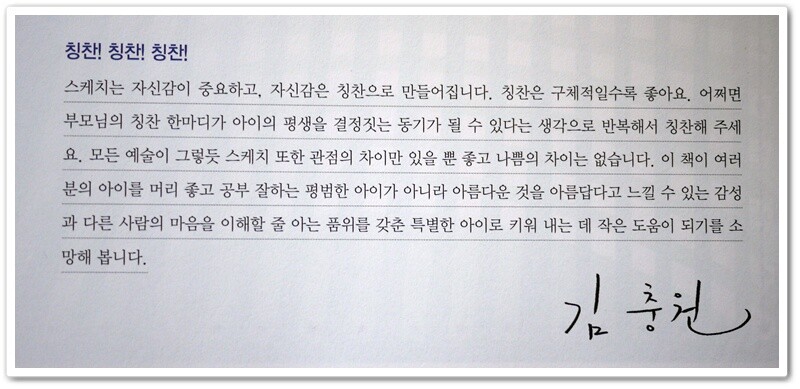 칭찬! 칭찬! 칭찬!
스케치는 자신감이 중요하고, 자신감은 칭찬으로 만들어집니다. 칭찬은 구체적일수록 좋아요. 어쩌면
부모님의 칭찬 한마디가 아이의 평생을 결정짓는 동기가 될 수 있다는 생각으로 반복해서 칭찬해 주세
요. 모든 예술이 그렇듯 스케치 또한 관점의 차이만 있을 뿐 좋고 나쁨의 차이는 없습니다. 이 책이 여러
분의 아이를 머리 좋고 공부 잘하는 평범한 아이가 아니라 아름다운 것을 아름답다고 느낄 수 있는 감성
과 다른 사람의 마음을 이해할 줄 아는 품위를 갖춘 특별한 아이로 키워 내는 데 작은 도움이 되기를 소
망해 봅니다.
김충원